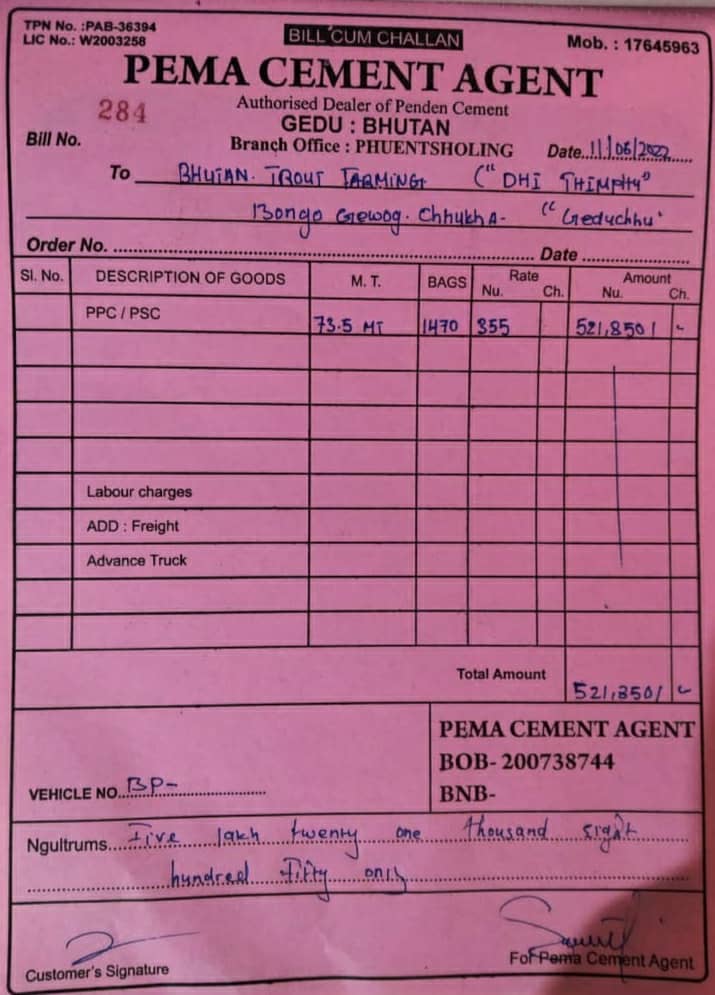 TPN No. :PAB-36394
LIC No.: W2003258
BILL CUM CHALLAN
Mob. : 17645963
PEMA CEMENT AGENT
284
Authorised Dealer of Penden Cement
GEDU : BHUTAN
Bill No.
Branch Office : PHUENTSHOLING
Date..11/06/2022......
To BHUTAN. TROUT FARMING ("DHI THIMPHU"
Bongo Gewog. Chhukha- "Geduchhu"
Order No. ........ Date ........
Sl. No. DESCRIPTION OF GOODS M. T. BAGS Rate Nu. Ch. Amount Nu. Ch.
PPC / PSC 73.5 MT 1470 355 521,850/ -
Labour charges
ADD : Freight
Advance Truck
Total Amount 521,850/ -
PEMA CEMENT AGENT
BOB- 200738744
BNB-
VEHICLE NO..BP-........
Ngultrums....Five lakh twenty one thousand eight
hundred fifty only
Customer's Signature
For Pema Cement Agent